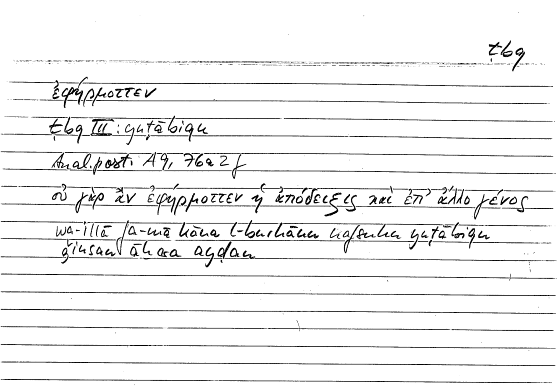 ṭbq
ἐφήρμοττεν
ṭbq III: yuṭābiqu
Anal. post. A 9, 76a 2 f
οὐ γὰρ ἂν ἐφήρμοττεν ἡ ἀπόδειξις καὶ ἐπ' ἄλλο γένος
wa-illā fa-mā kāna l-burhānu nafsuhu yuṭābiqu
ǧinsan āḫara ayḍan